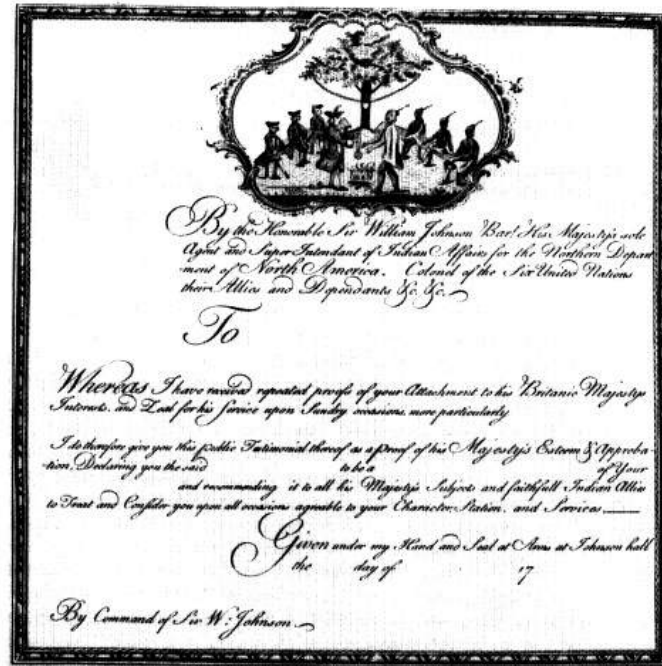 By the Honorable Sir William Johnson Bar.t His Majesty's sole
Agent and Super Intendant of Indian Affairs for the Northern Depart
ment of North America. Colonel of the Six United Nations
their Allies and Dependants &c. &c.
To
Whereas I have received repeated proofs of your Attachment to his Britanic Majestys
Interests, and Zeal for his Service upon Sundry occasions, more particularly
I do therefore give you this public Testimonial thereof as a proof of his Majesty's Esteem & Approba-
tion, Declaring you the said to be a of Your
and recommending it to all his Majestys Subjects and faithfull Indian Allies
to Treat and Consider you upon all occasions agreable to your Character, Station, and Services
Given under my Hand and Seal at Arms at Johnson hall
the day of 17
By Command of Sir W: Johnson